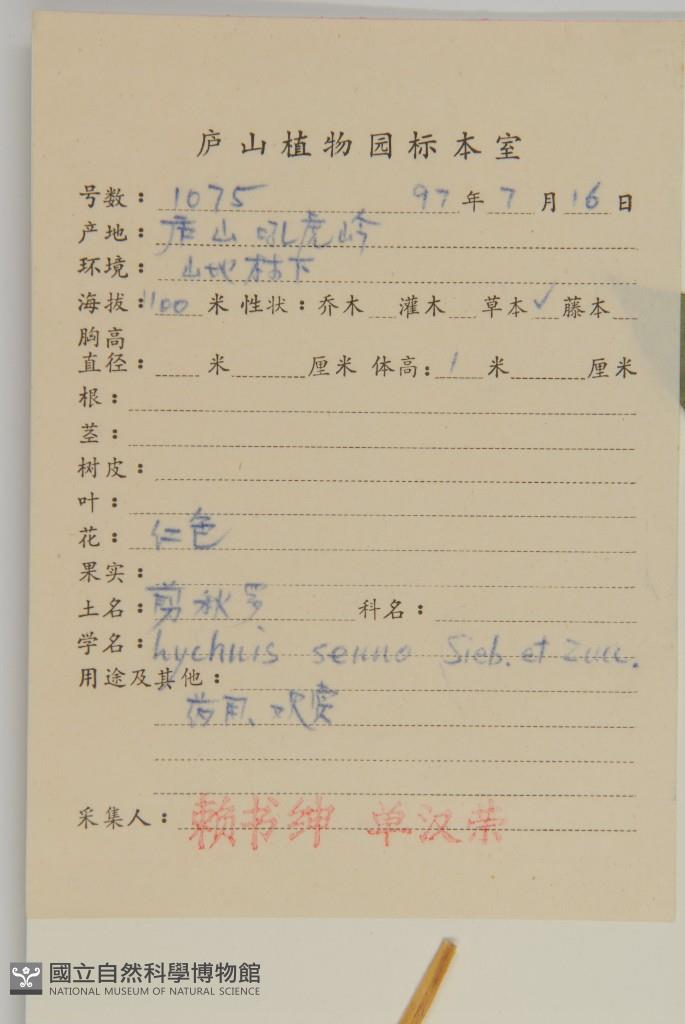 庐山植物园标本室
号数：1075 97年7月16日
产地：庐山吼虎岭
环境：山地林下
海拔：1100米 性状：乔木 灌木 草本✓藤本
胸高
直径： 米 厘米 体高：1 米 厘米
根：
茎：
树皮：
叶：
花：红色
果实：
土名：剪秋罗 科名：
学名：Lychnis senno Sieb. et Zucc.
用途及其他：
药用、观赏
采集人：赖书绅 单汉荣
國立自然科學博物館
NATIONAL MUSEUM OF NATURAL SCIENCE